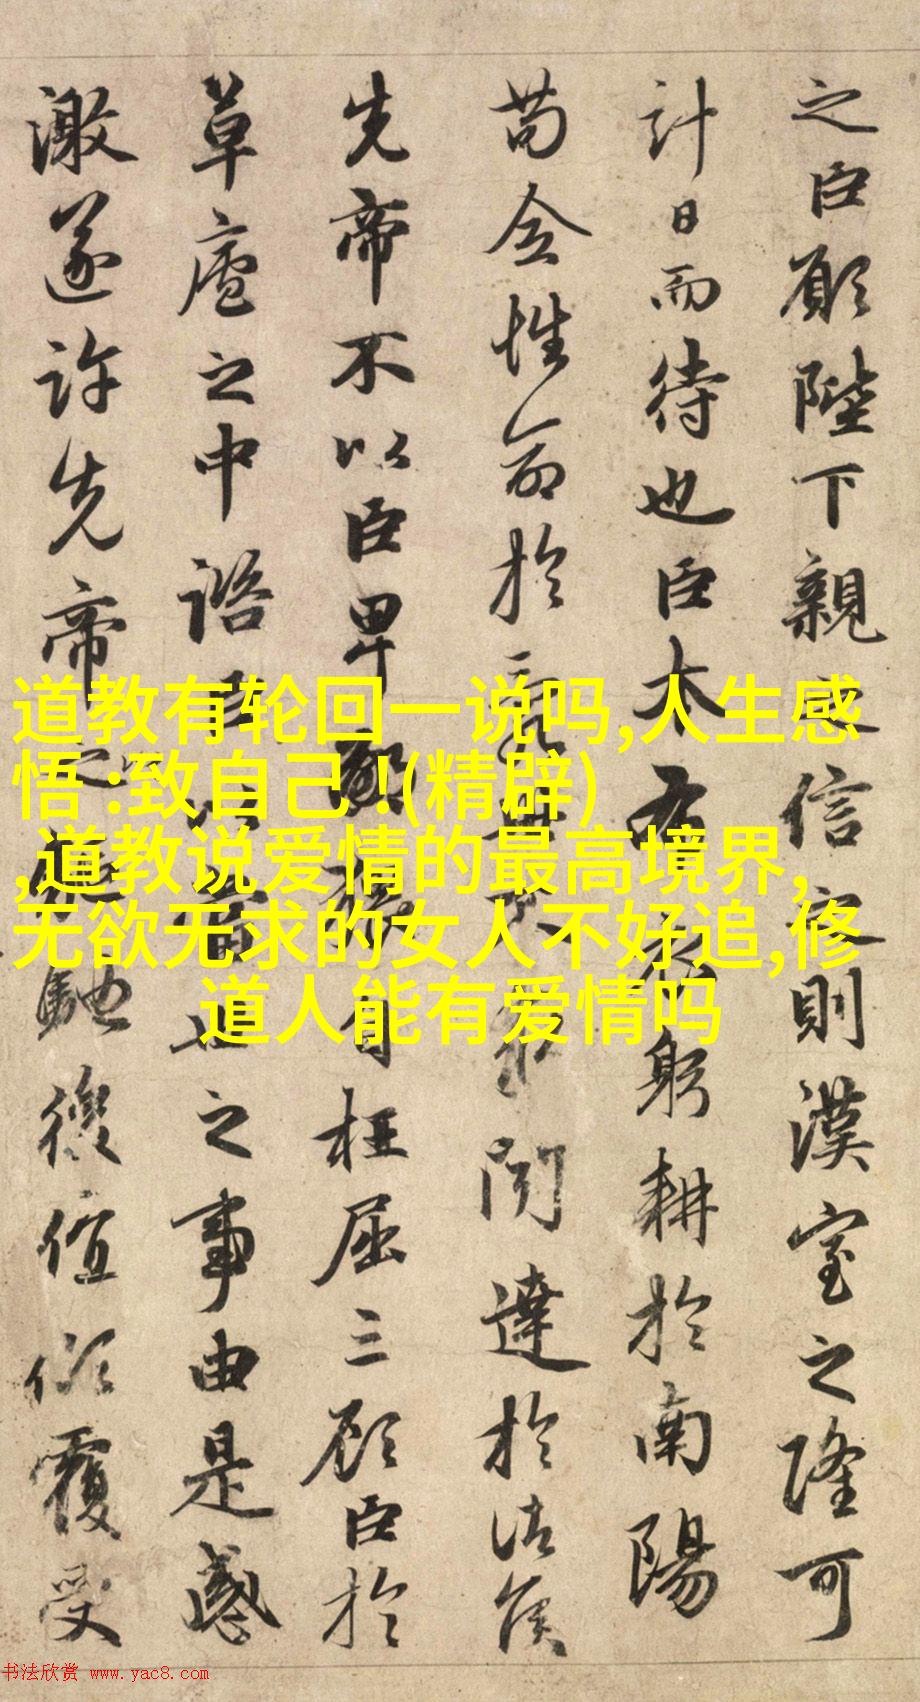 之臣願陛下親之信之則漢室之隆可
計日而待也臣本布衣躬耕於南陽
苟全性命於亂世不求聞達於諸侯
先帝不以臣卑鄙猥自枉屈三顧臣於
草廬之中諮臣以當世之事由是感
激遂許先帝之驅馳後值傾覆受
道教有轮回一说吗,人生感
悟 :致自己 !(精辟)
,道教说爱情的最高境界,
无欲无求的女人不好追,修
道人能有爱情吗
书法欣赏 www.yac8.com